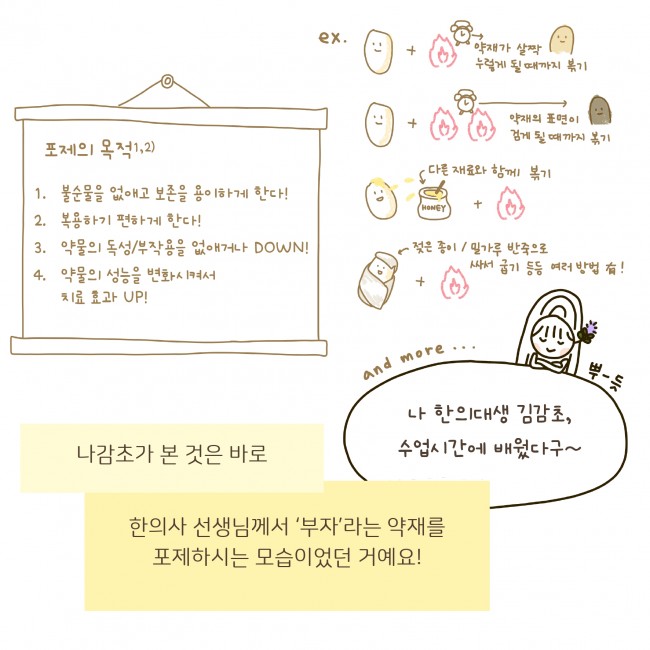 포제의 목적1,2)
1. 불순물을 없애고 보존을 용이하게 한다!
2. 복용하기 편하게 한다!
3. 약물의 독성/부작용을 없애거나 DOWN!
4. 약물의 성능을 변화시켜서
치료 효과 UP!
ex.
약재가 살짝
누렇게 될 때까지 볶기
약재의 표면이
검게 될 때까지 볶기
다른 재료와 함께 볶기
HONEY
젖은 종이 / 밀가루 반죽으로
싸서 굽기 등등 여러 방법 有!
and more ...
뿌-듯
나 한의대생 김감초,
수업시간에 배웠다구~
나감초가 본 것은 바로
한의사 선생님께서 ‘부자’라는 약재를
포제하시는 모습이었던 거예요!